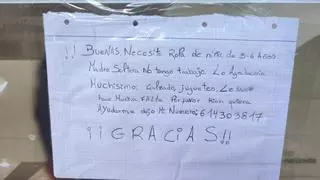 !! BUENAS. Necesito Ropa de niña de 5-6 Años
Madre Soltera No tengo trabajo. Lo Ayudaria
Muchisimo. Calzado, juguetes. Lo que
hace Mucha FALTA. Por favor quien quiera
Ayudarme dejo Mi Numero: 614303817
¡¡ GRACIAS!!